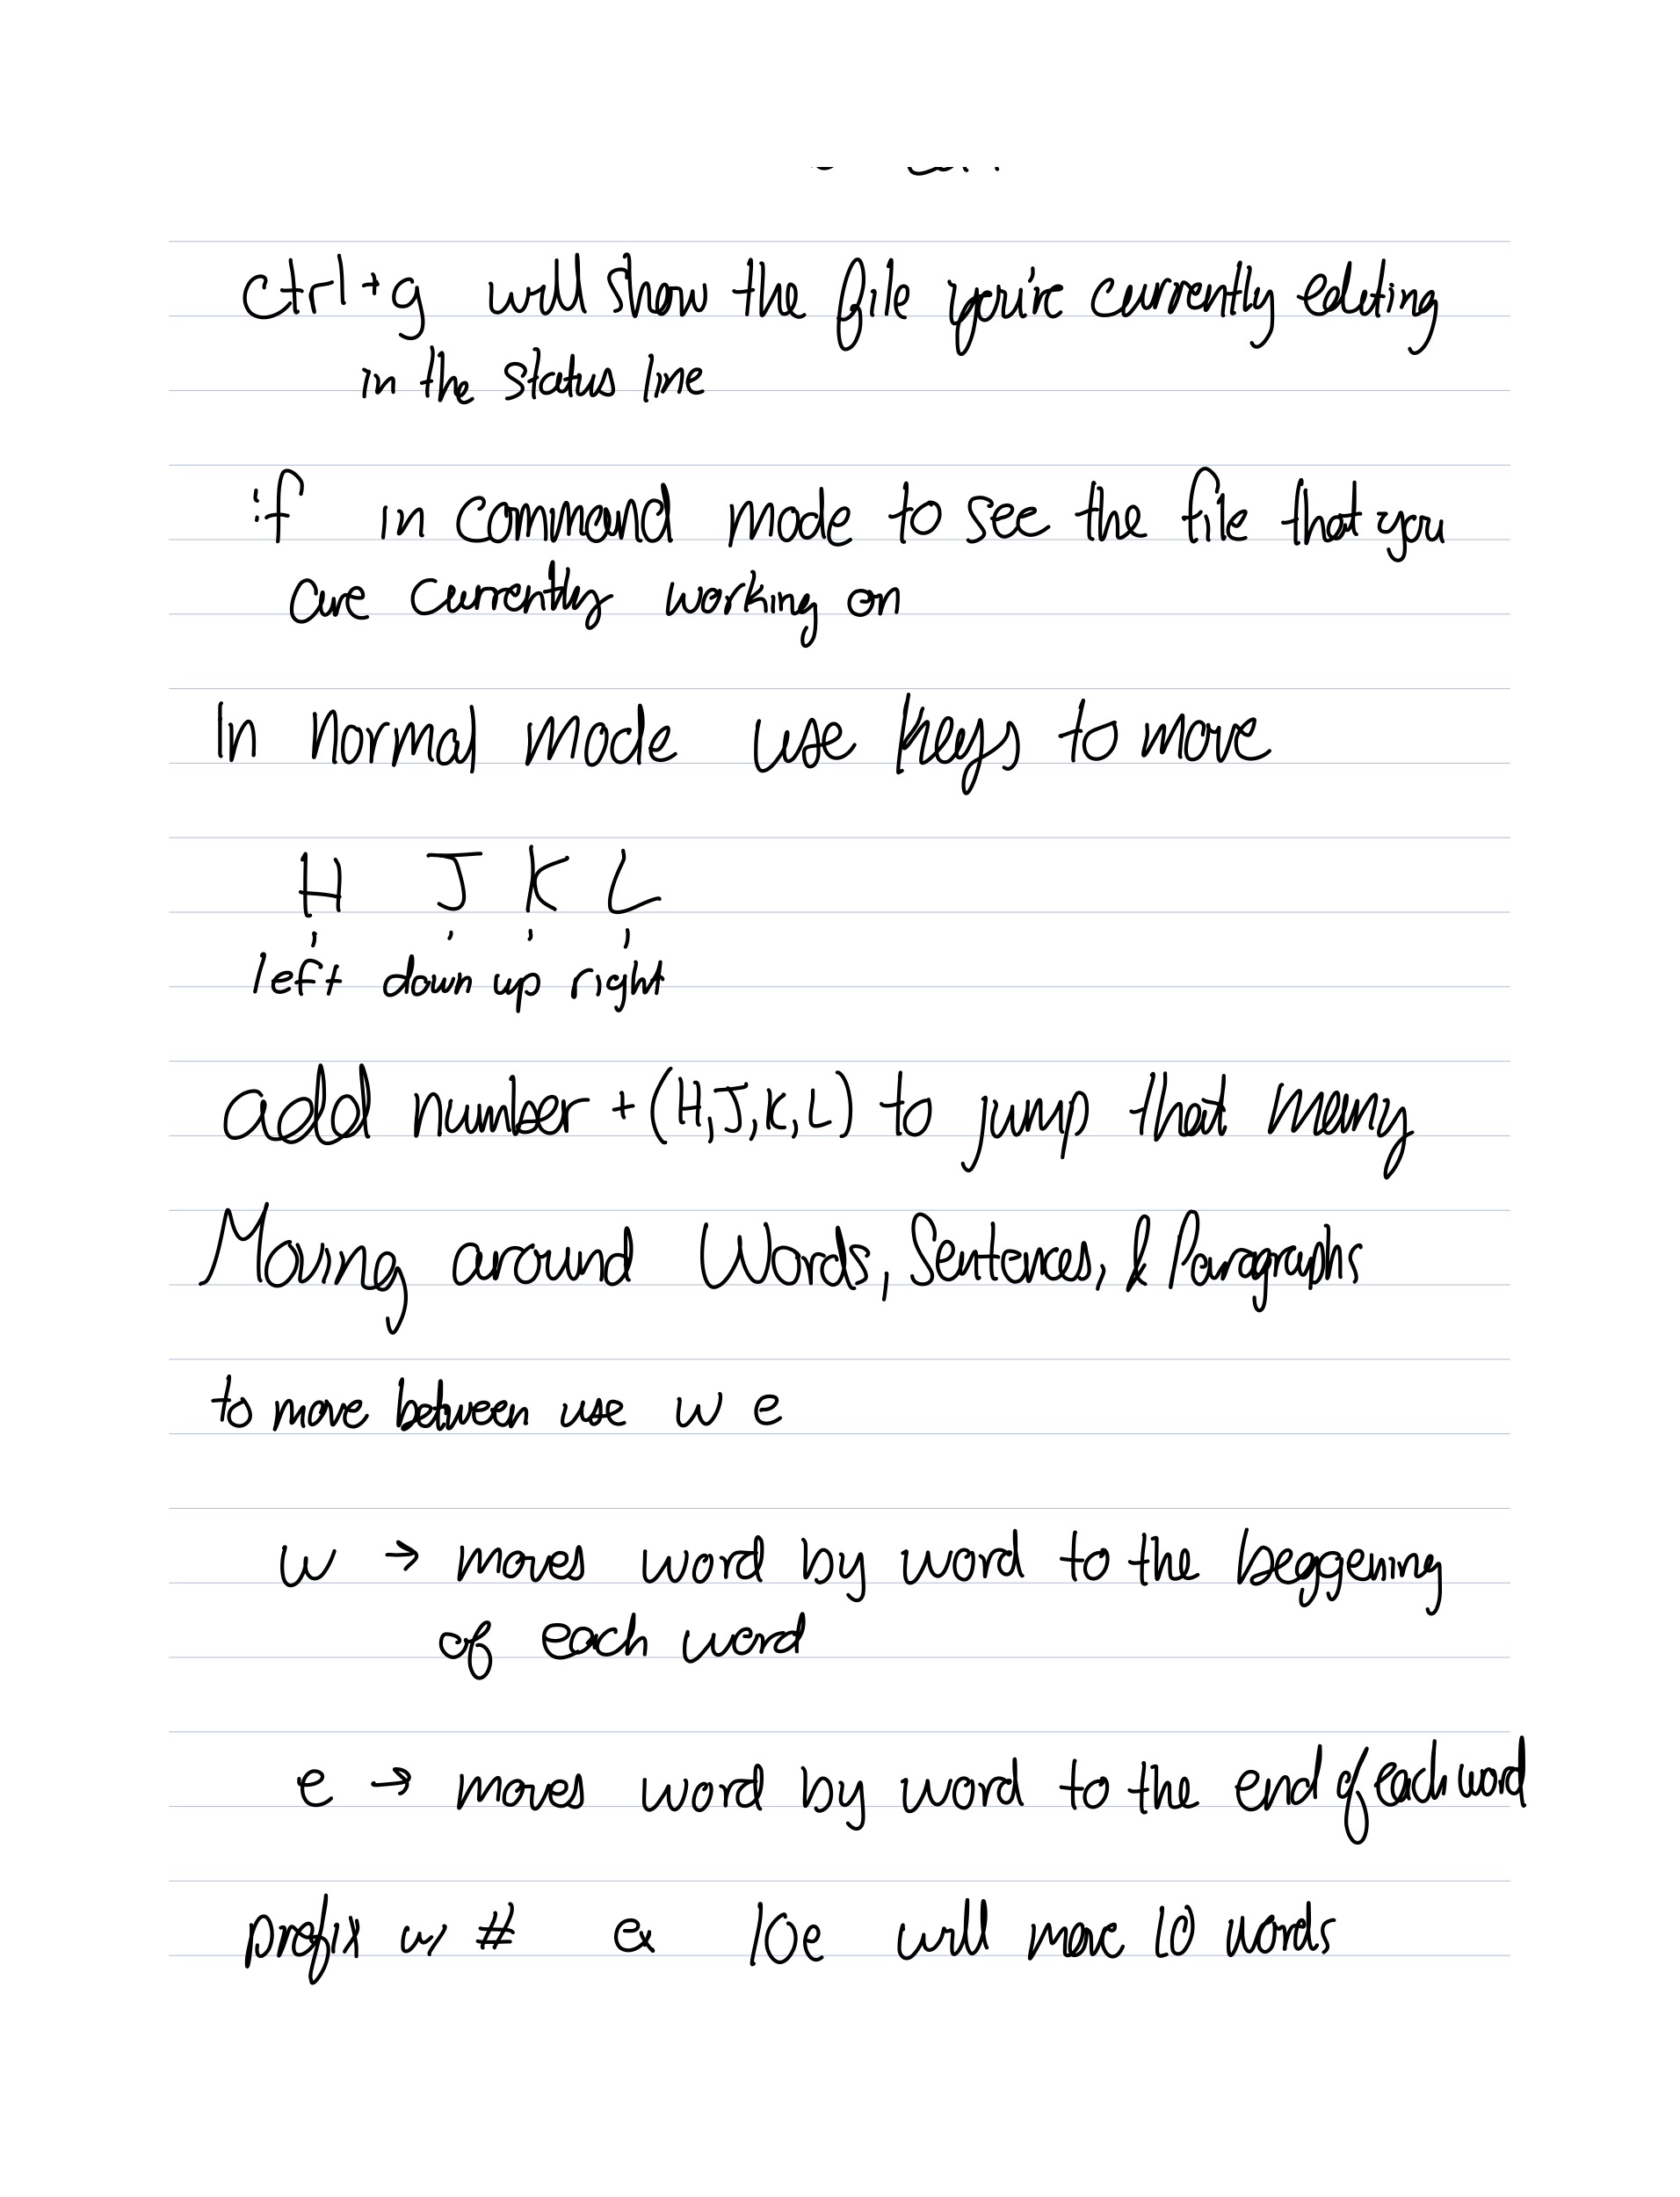 ctrl+g will show the file you're currently editing
in the status line
:f in command mode to see the file that you
are currently working on
In normal mode use keys to move
H J K L
left down up right
add number + (H,J,K,L) to jump that many
Moving around Words, Sentences, & Paragraphs
to move between use w e
w → moves word by word to the beggening
of each word
e → moves word by word to the end of each word
prefix w/ # ex 10e will move 10 words